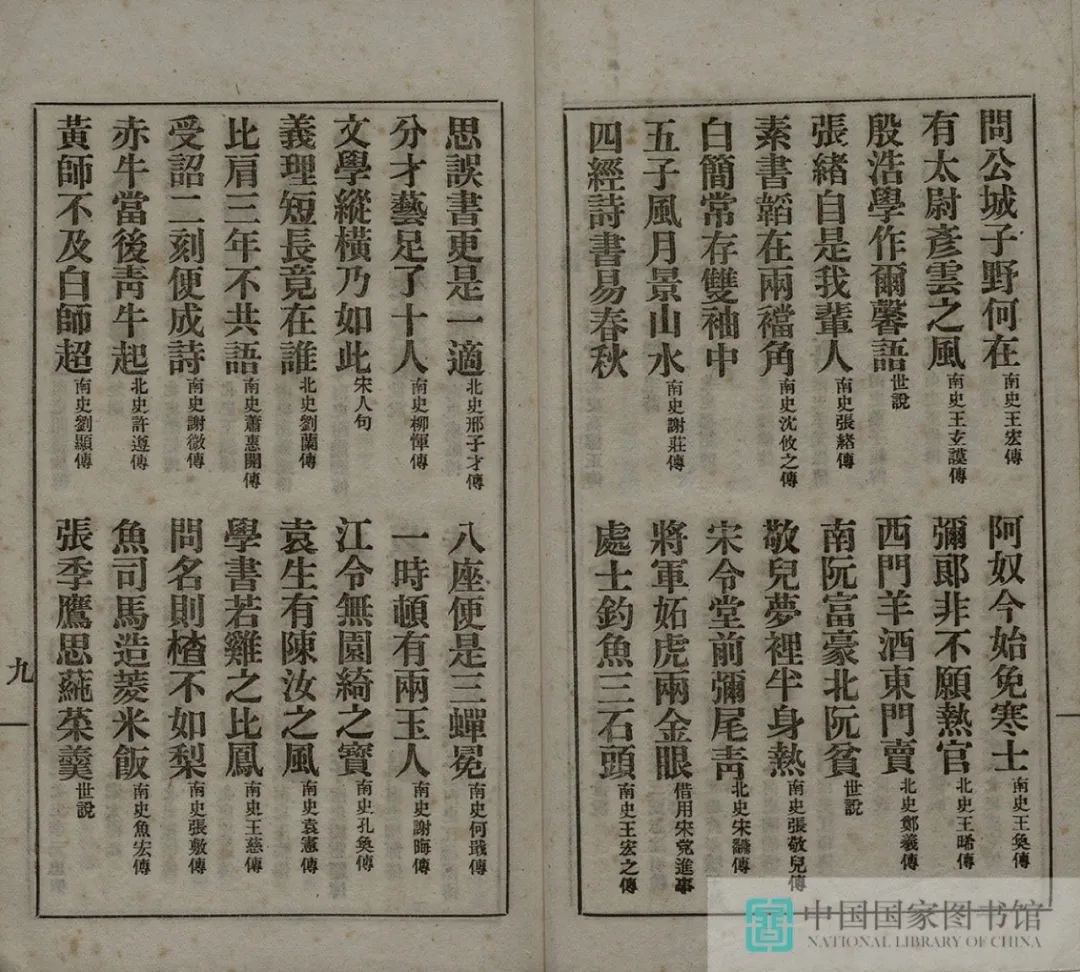 問公城子野何在 南史王宏傳 阿奴今始免寒士 南史王奐傳
有太尉彥雲之風 南史王玄謨傳 彌郎非不願熱官 北史王晞傳
殷浩學作爾馨語 世說 西門羊酒東門賣 北史鄭羲傳
張緒自是我輩人 南史張緒傳 南阮富豪北阮貧 世說
素書韜在兩襠角 南史沈攸之傳 敬兒夢裡半身熱 南史張敬兒傳
白簡常存雙袖中 宋令堂前彌尾青 北史宋翻傳
五子風月景山水 南史謝莊傳 將軍妬虎兩金眼 借用宋党進事
四經詩書易春秋 處士釣魚三石頭 南史王宏之傳
思誤書更是一適 北史邢子才傳 八座便是三蟬冕 南史何戢傳
分才藝足了十人 南史柳惲傳 一時頓有兩玉人 南史謝晦傳
文學縱橫乃如此 宋人句 江令無園綺之實 南史孔奐傳
義理短長竟在誰 北史劉蘭傳 袁生有陳汝之風 南史袁憲傳
比肩三年不共語 南史蕭惠開傳 學書若雞之比鳳 南史王慈傳
受詔二刻便成詩 南史謝徵傳 問名則楂不如梨 南史張敷傳
赤牛當後靑牛起 北史許遵傳 魚司馬造菱米飯 南史魚宏傳
黃師不及白師超 南史劉顯傳 張季鷹思蒓菜羹 世說
九
中国国家图书馆
NATIONAL LIBRARY OF CHINA